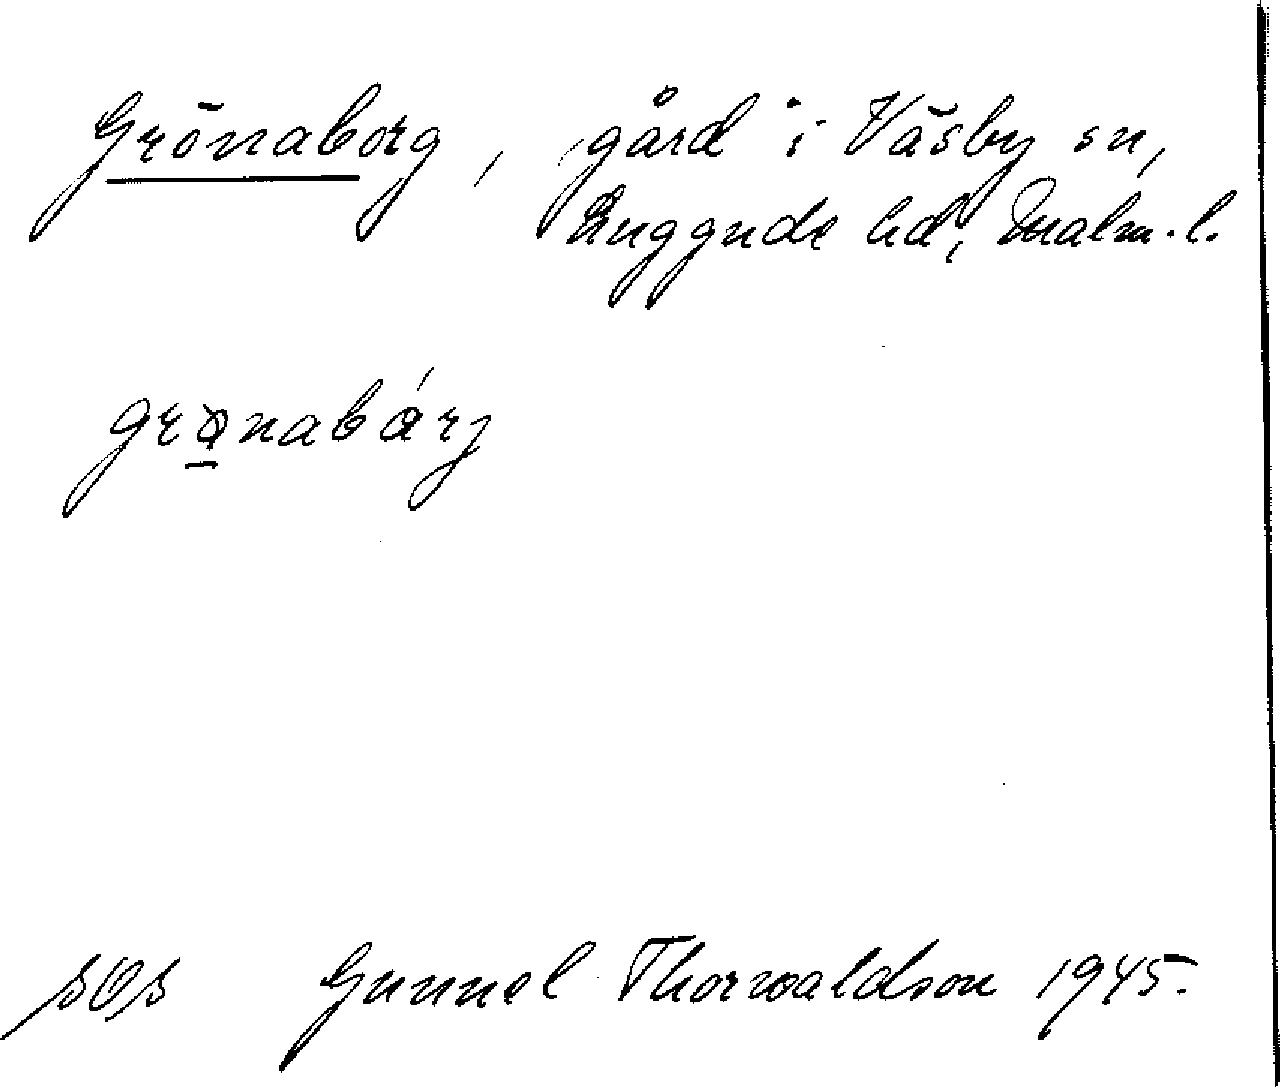 Grönaborg, gård i Väsby sn,
Luggude hd, Malm. l.
grø̱nabárj
SOS Gunnel Thorwaldson 1945.